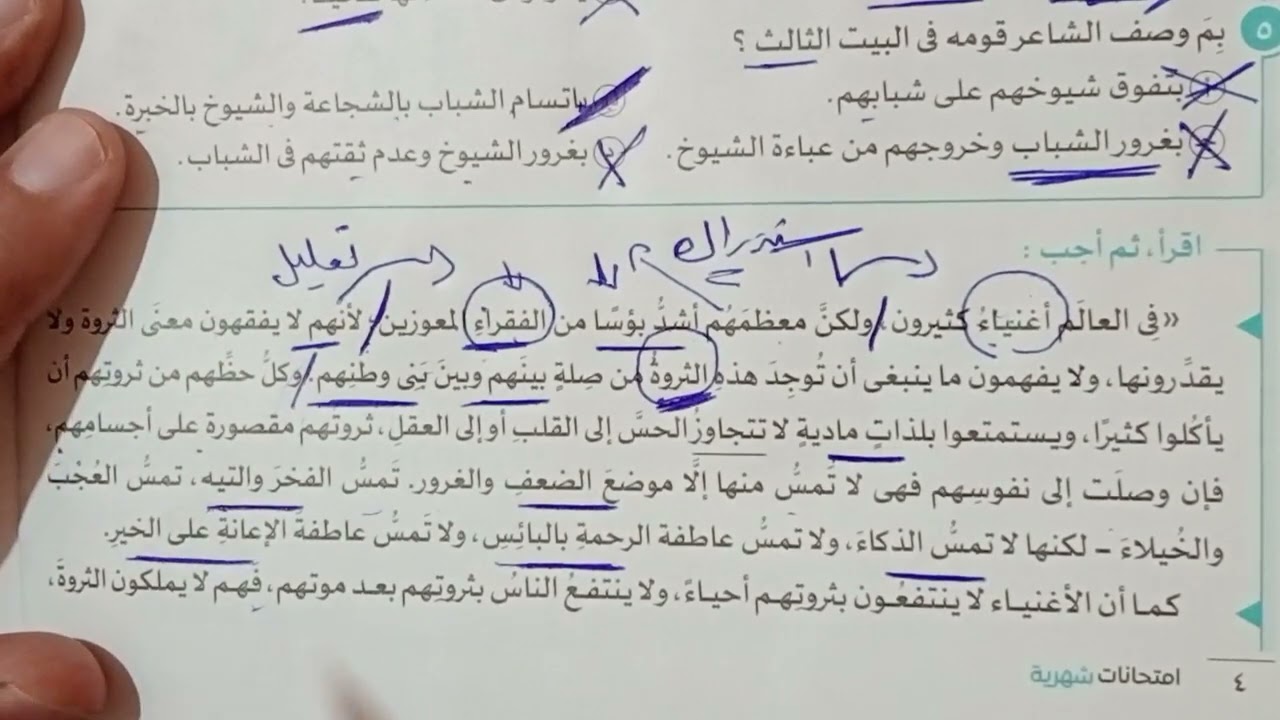 ٥ بِمَ وصف الشاعر قومه فى البيت الثالث ؟
بتفوق شيوخهم على شبابهم.
باتسام الشباب بالشجاعة والشيوخ بالخبرة.
بغرور الشباب وخروجهم من عباءة الشيوخ.
بغرور الشيوخ وعدم ثقتهم فى الشباب.
اقرأ، ثم أجب :
استدراك
تعليل
«فِى العالَم أغنياءُ كثيرون، ولكنَّ معظمَهُم أشدُّ بؤسًا من الفقراءِ المعوزين، لأنهم لا يفقهون معنَى الثروة ولا
يقدِّرونها، ولا يفهمون ما ينبغى أن تُوجِدَ هذهِ الثروةُ من صلةٍ بينَهم وبينَ بَنِى وطنِهم. وكلُّ حظِّهم من ثروتِهم أن
يأكُلوا كثيرًا، ويستمتعوا بلذاتٍ ماديةٍ لا تتجاوزُ الحسَّ إلى القلبِ أو إلى العقلِ، ثروتُهم مقصورة على أجسامِهم،
فإن وصلَت إلى نفوسِهم فهى لا تَمسُّ منها إلَّا موضعَ الضعفِ والغرور. تَمسُّ الفخرَ والتيه، تمسُّ العُجْبَ
والخُيلاءَ – لكنها لا تمسُّ الذكاءَ، ولا تمسُّ عاطفة الرحمةِ بالبائِسِ، ولا تَمسُّ عاطفةَ الإعانةِ على الخيرِ.
كما أن الأغنياء لا ينتفعُون بثروتِهم أحياءً، ولا ينتفعُ الناسُ بثروتهم بعد موتهم، فهم لا يملكون الثروةَ،
٤ امتحانات شهرية